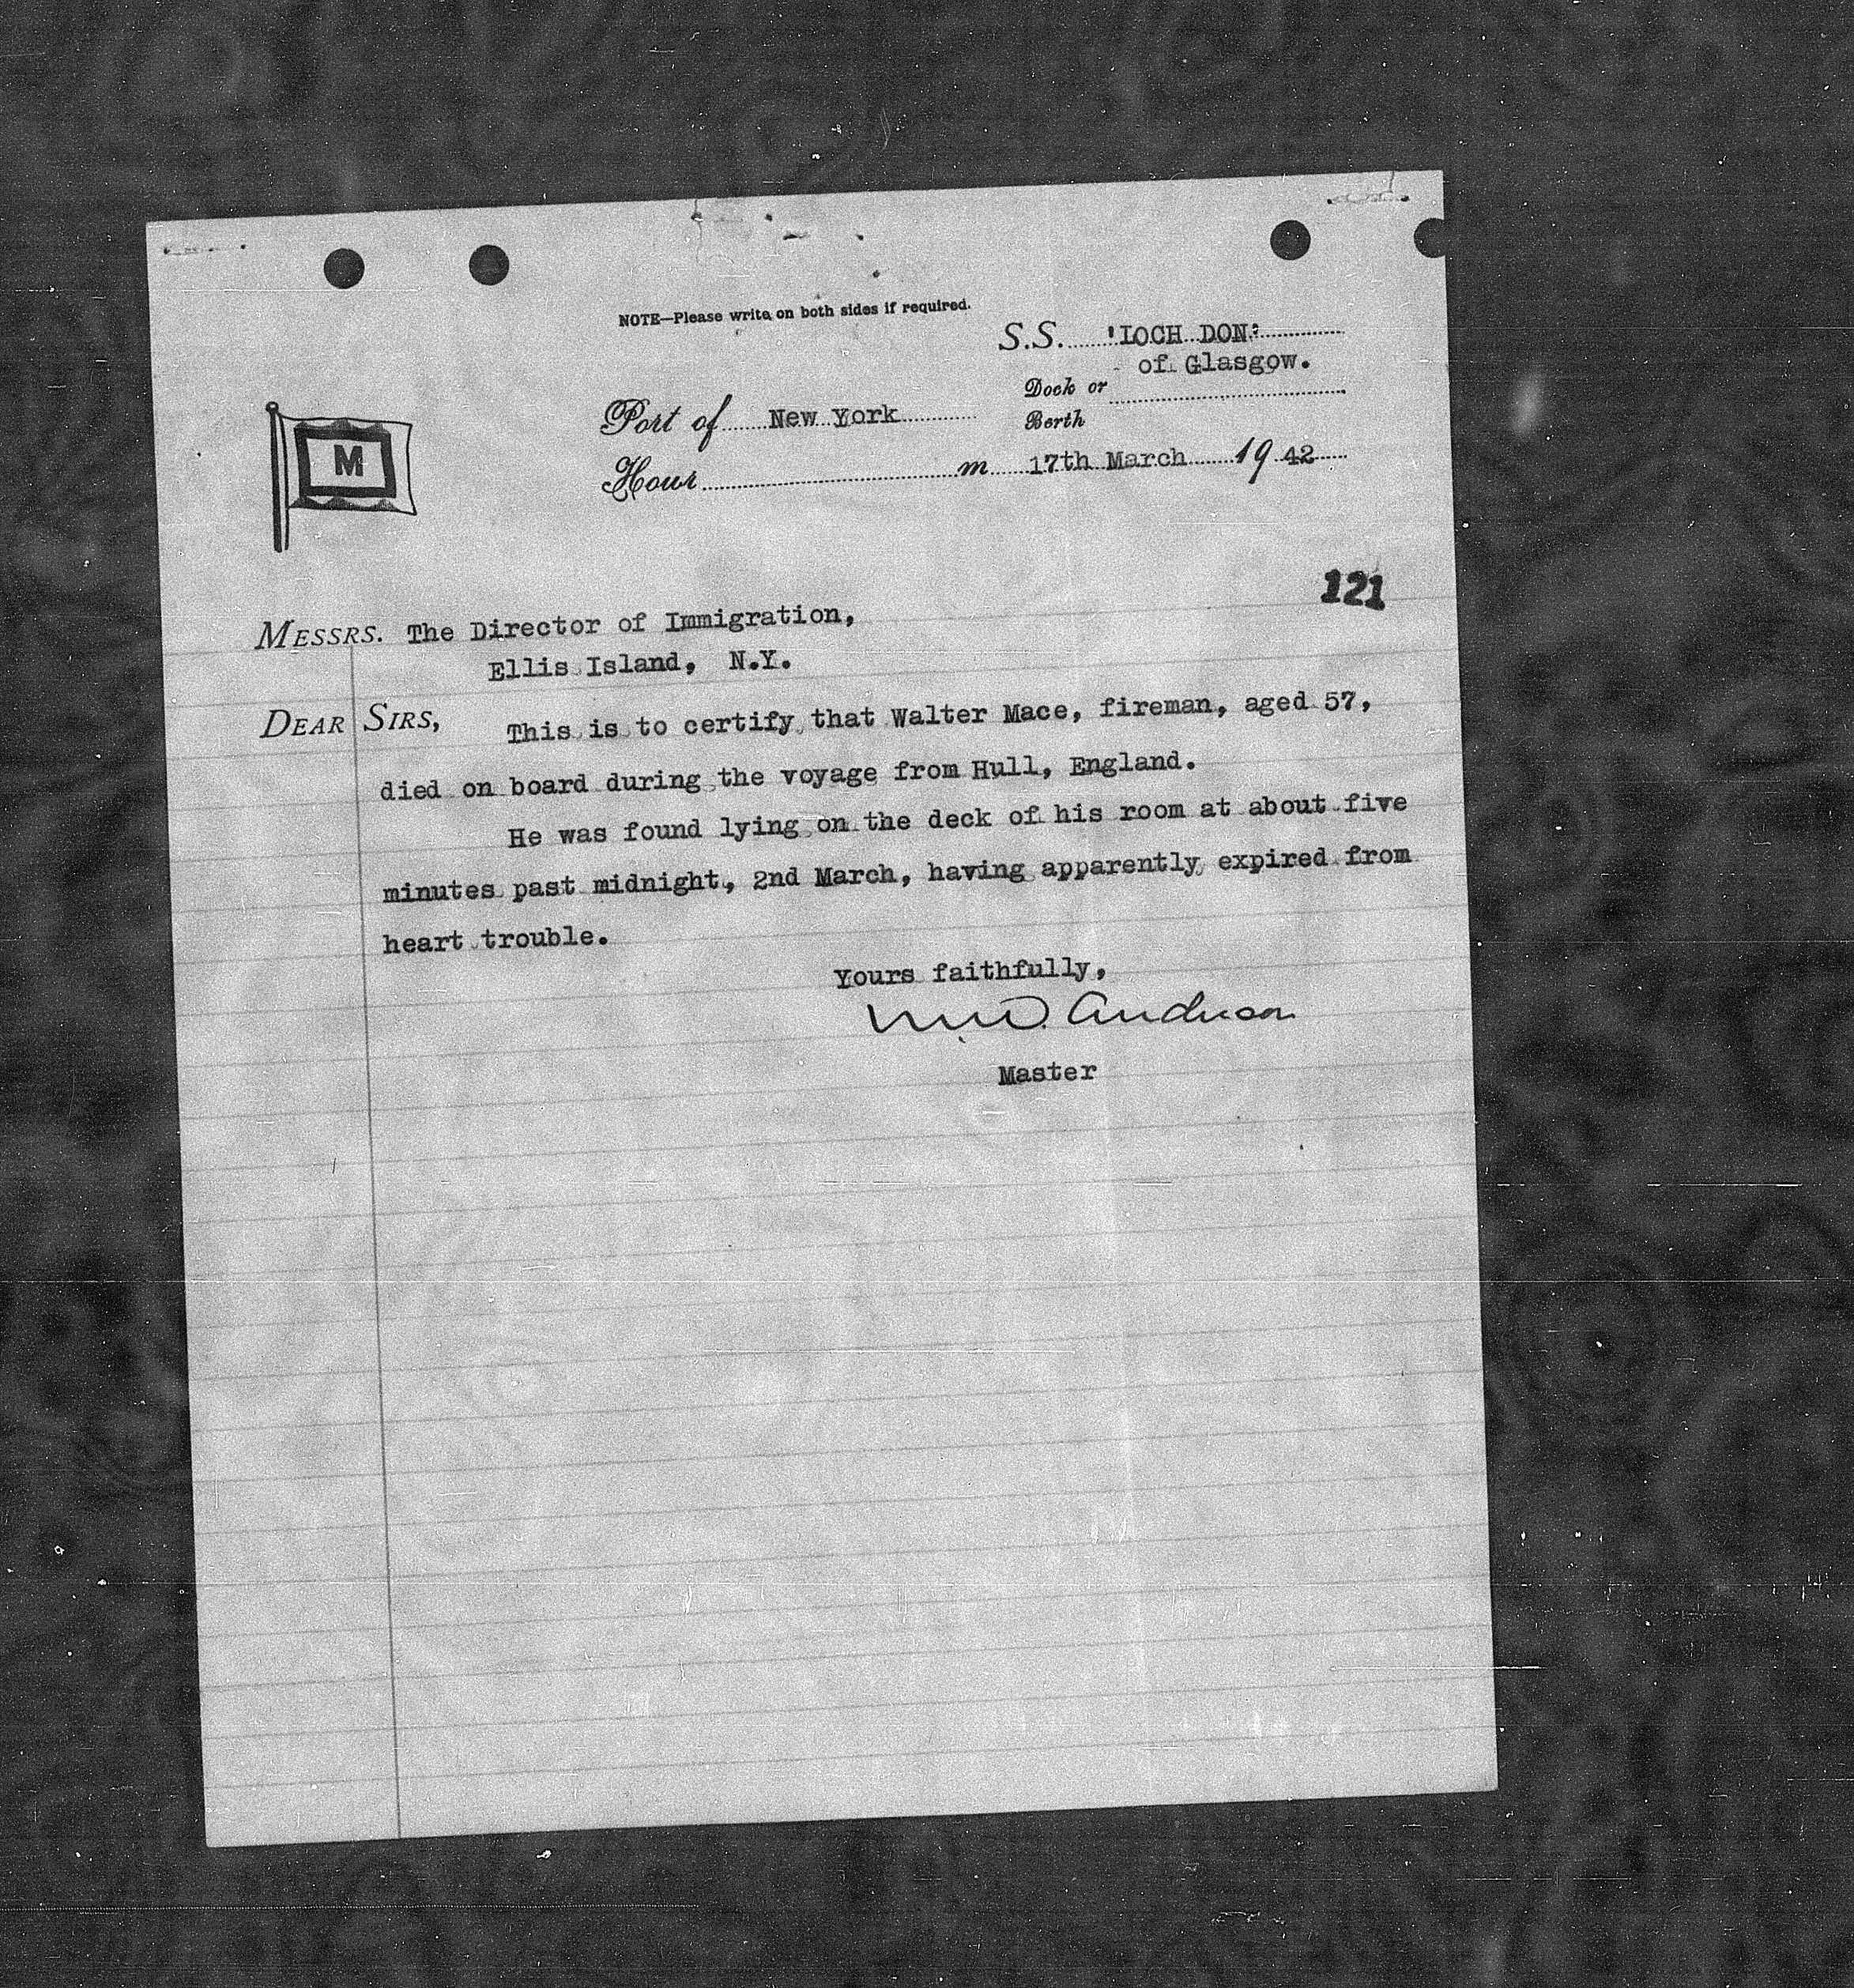 NOTE—Please write on both sides if required.
S.S. 'LOCH DON'
of Glasgow.
Dock or
Berth
Port of New York
Hour m 17th March 19 42
M
121
MESSRS. The Director of Immigration,
Ellis Island, N.Y.
DEAR SIRS, This is to certify that Walter Mace, fireman, aged 57,
died on board during the voyage from Hull, England.
He was found lying on the deck of his room at about five
minutes past midnight, 2nd March, having apparently expired from
heart trouble.
Yours faithfully,
Anderson
Master